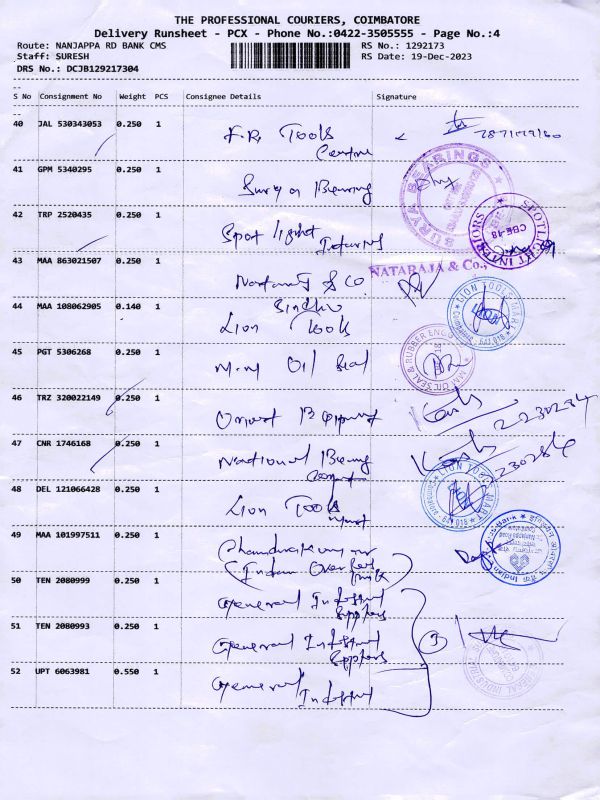 THE PROFESSIONAL COURIERS, COIMBATORE
Delivery Runsheet - PCX - Phone No.:0422-3505555 - Page No.:4
Route: NANJAPPA RD BANK CMS RS No.: 1292173
Staff: SURESH RS Date: 19-Dec-2023
DRS No.: DCJB129217304
S No Consignment No Weight PCS Consignee Details Signature
40 JAL 530343053 0.250 1 Tools
Centre
41 GPM 5340295 0.250 1 Surya Bearing
SURYA BEARINGS
42 TRP 2520435 0.250 1 Spot light
SPOTLIGHT INTERIORS
CBE-18
43 MAA 863021507 0.250 1 & Co.
NATARAJA & Co.,
44 MAA 108062905 0.140 1 Lion Tools
LION TOOLS MART
45 PGT 5306268 0.250 1 Oil Seal
OIL SEAL & RUBBER ENGG
46 TRZ 320022149 0.250 1
2230284
47 CNR 1746168 0.250 1 National Bearing
230284
48 DEL 121066428 0.250 1 Lion Tools
LION TOOLS MART
49 MAA 101997511 0.250 1
Indian Overseas
Bank
50 TEN 2080999 0.250 1 General Industrial
Suppliers
51 TEN 2080993 0.250 1 General Industrial
Suppliers
3
52 UPT 6063981 0.550 1 General
Industrial